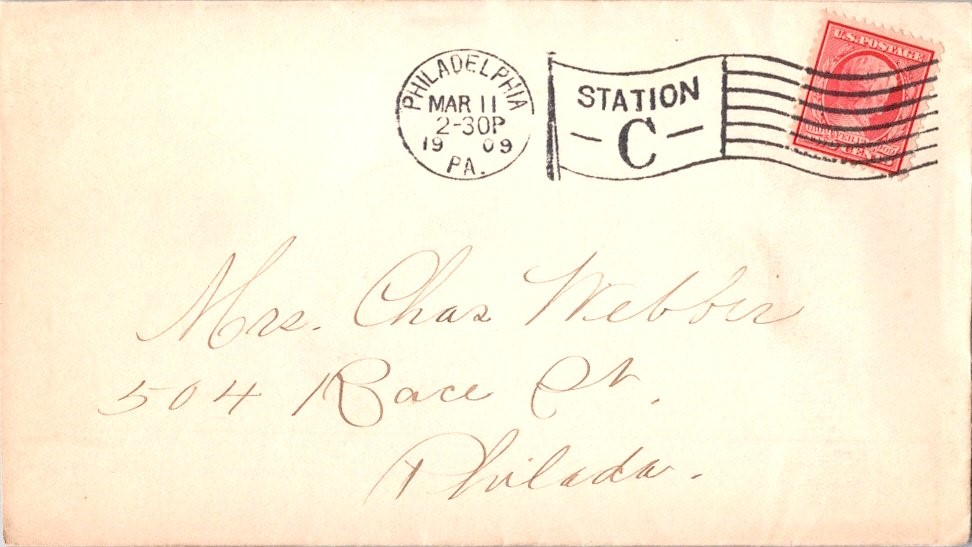 PHILADELPHIA
MAR 11
2-30P
19 09
PA.
STATION
- C -
U.S. POSTAGE
Mrs. Chas Webber
504 Race St.
Philada.